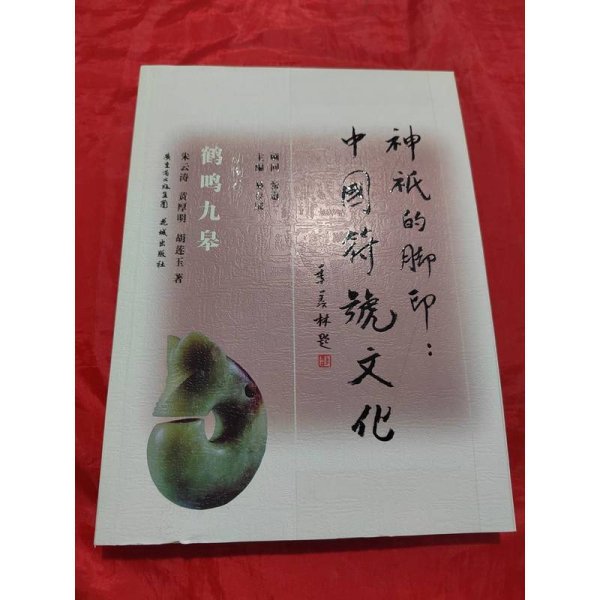 神祇的脚印：
中國符號文化
季羡林题
顾问
主编
鹤鸣九皋
朱云涛 黄厚明 胡莲玉 著
广东省出版集团 花城出版社